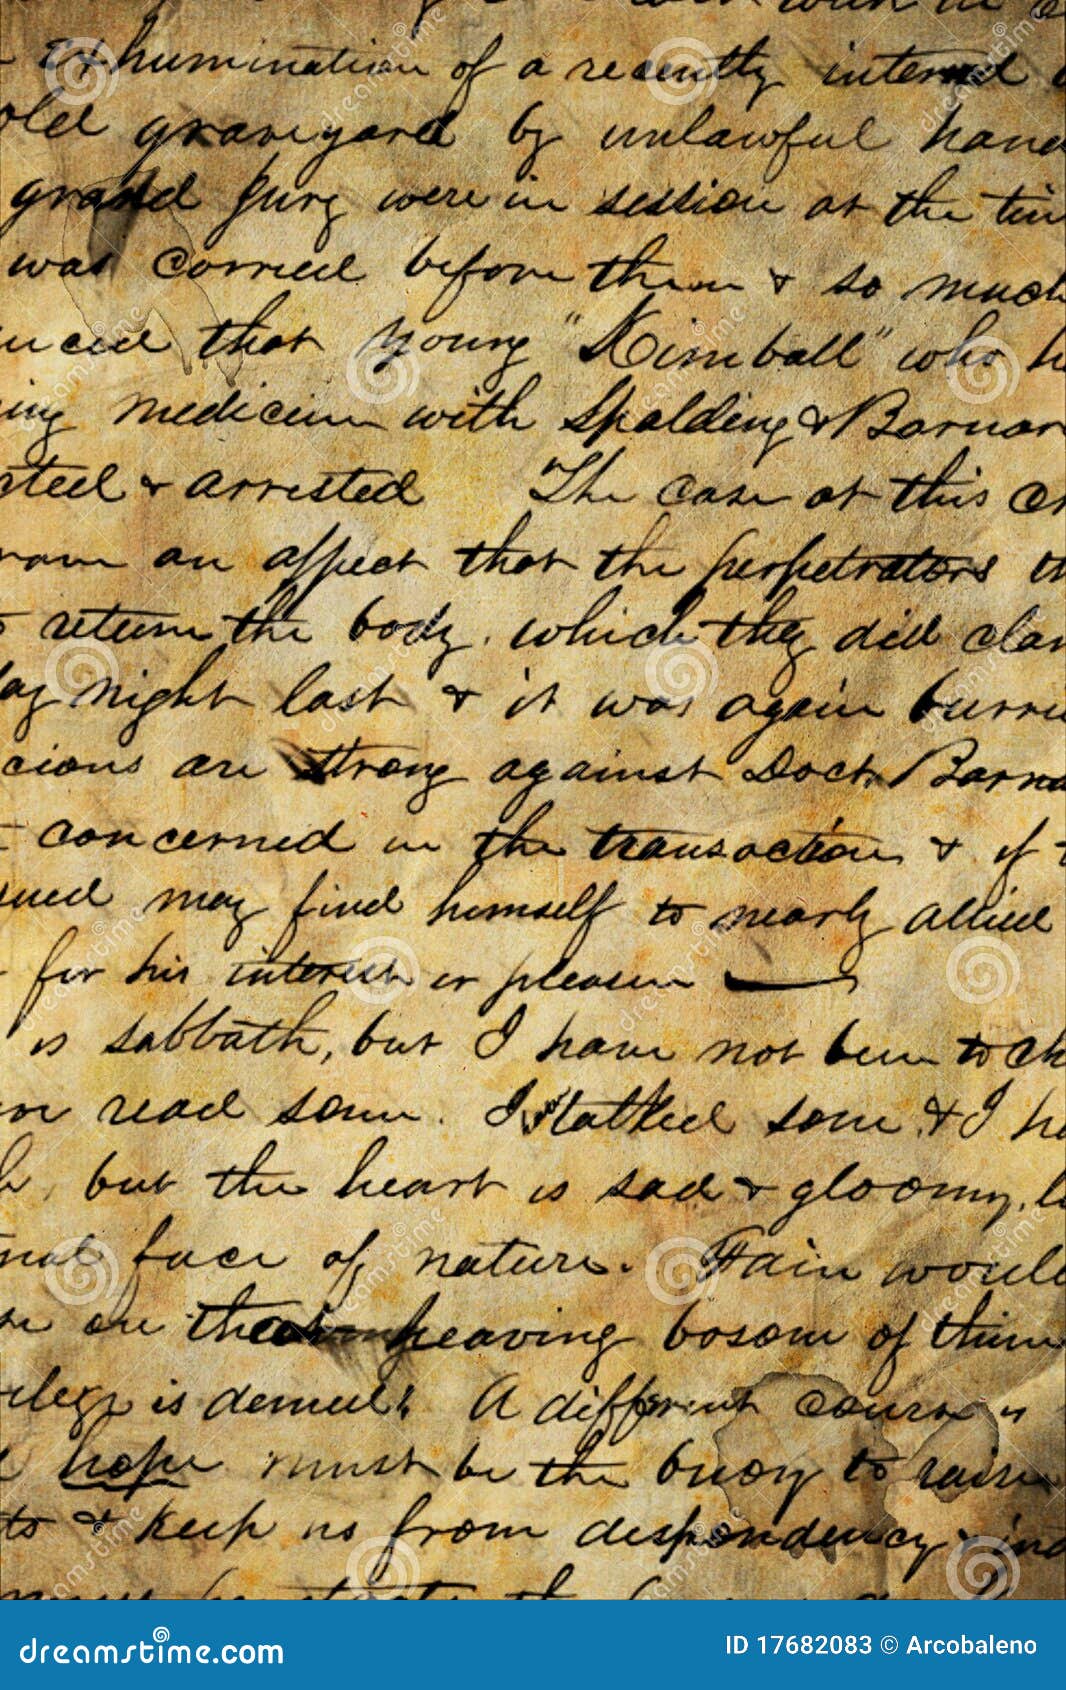 exhumination of a recently interred
old graveyard by unlawful hand
grand jury were in session at the tim
was carried before them & so much
uced that young "Kimball" who h
ing medicine with Spalding & Barnar
sted & arrested The case at this
an affect that the perpetrators th
return the body, which they did clan
ay night last & it was again burrie
cions are strong against Doct. Barna
concerned in the transaction & if t
sued may find himself to nearly allied
for his interest or pleasure
is sabbath, but I have not been to ch
read some. I talked some & I ha
but the heart is sad & gloomy, l
nal face of nature. Fain would
on the heaving bosom of thine
ilege is denied! A different course is
hope must be the buoy to raise
ts & keep us from despondency & ind
dreamstime.com
ID 17682083 © Arcobaleno